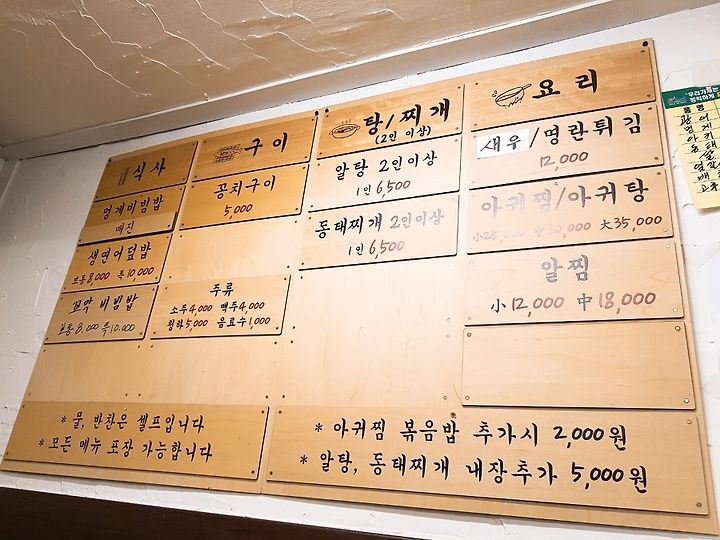 식사
멍게비빔밥
매진
생연어덮밥
보통 8,000 특 10,000
꼬막 비빔밥
보통 8,000 특 10,000
구이
꽁치구이
5,000
주류
소주 4,000 맥주 4,000
청하 5,000 음료수 1,000
탕/찌개
(2인 이상)
알탕 2인이상
1인 6,500
동태찌개 2인이상
1인 6,500
요리
새우/명란튀김
12,000
아귀찜/아귀탕
小 25,000 中 30,000 大 35,000
알찜
小 12,000 中 18,000
* 물, 반찬은 셀프입니다
* 모든 메뉴 포장 가능합니다
* 아귀찜 볶음밥 추가시 2,000원
* 알탕, 동태찌개 내장추가 5,000원
품명
광어
멍게
아귀
동태